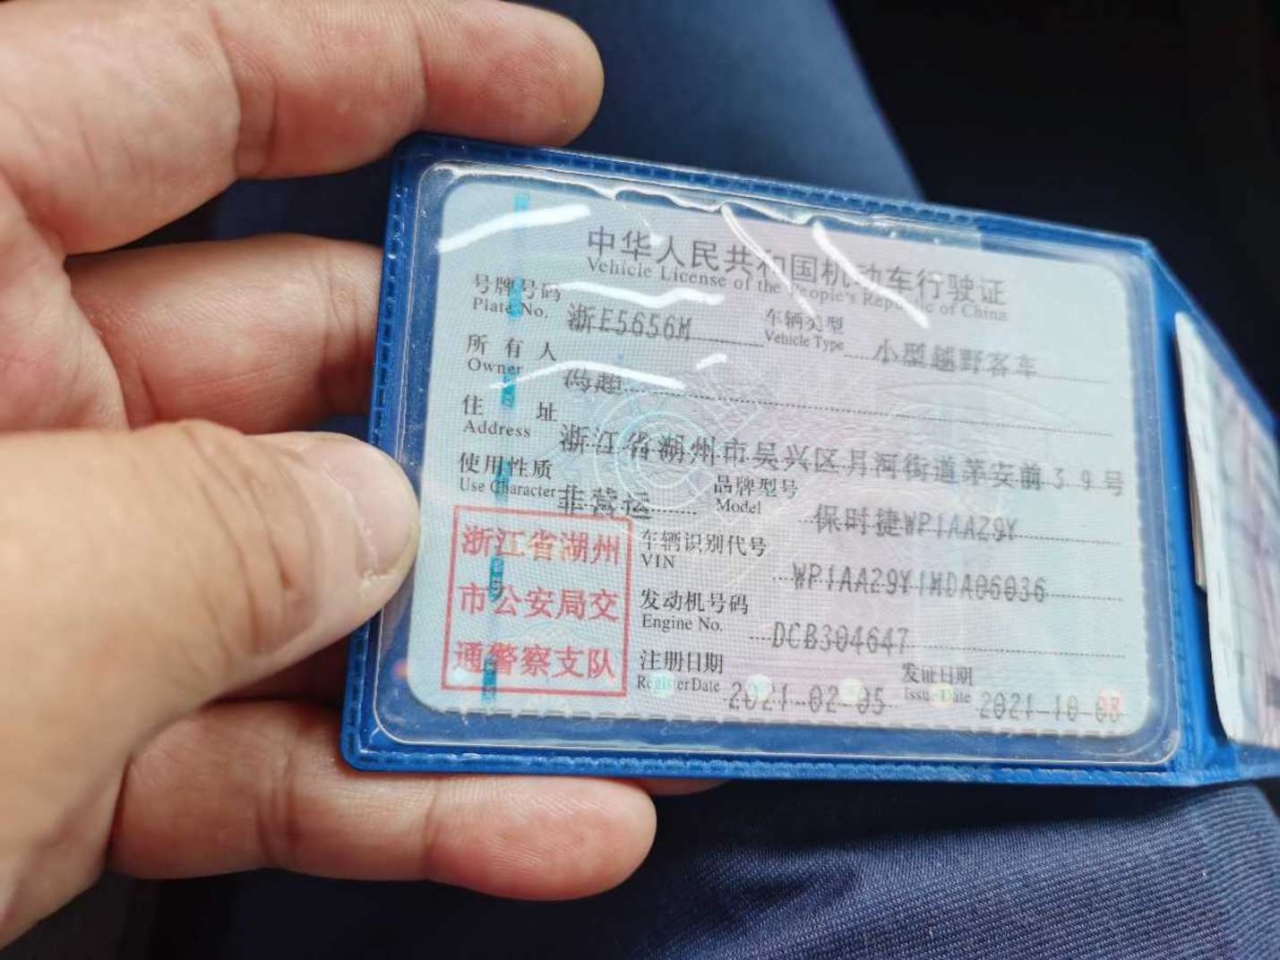 中华人民共和国机动车行驶证
Vehicle License of the People's Republic of China
号牌号码 浙E5656M 车辆类型 小型越野客车
Plate No. Vehicle Type
所有人 冯超
Owner
住址 浙江省湖州市吴兴区月河街道茅安前39号
Address
使用性质 非营运 品牌型号 保时捷WP1AAZ9Y
Use Character Model
浙江省湖州
市公安局交
通警察支队
车辆识别代号 WP1AA29Y1MDA06036
VIN
发动机号码 DCB304647
Engine No.
注册日期 2021-02-05 发证日期 2021-10-08
Register Date Issue Date